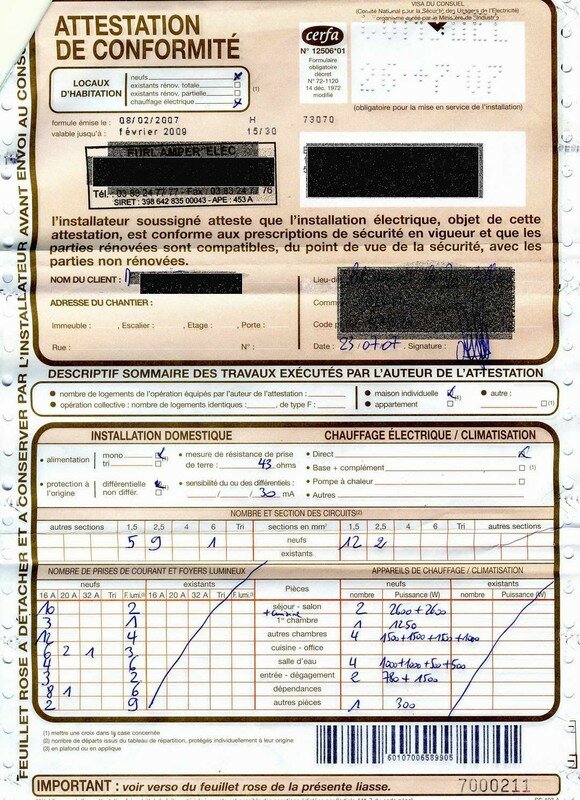 VISA DU CONSUEL
(Comité National pour la Sécurité des Usagers de l'Electricité)
organisme agréé par le Ministère de l'Industrie
ATTESTATION
DE CONFORMITÉ
cerfa
N° 12506*01
Formulaire
obligatoire
décret
N° 72-1120
14 déc. 1972
modifié
LOCAUX
D'HABITATION
neufs
existants rénov. totale
existants rénov. partielle
chauffage électrique
(1)
(obligatoire pour la mise en service de l'installation)
formule émise le : 08/02/2007 H 73070
valable jusqu'à : février 2009 15/30
FURLAMPER ELEC
SIRET : 398 642 835 00043 - APE : 453 A
l'installateur soussigné atteste que l'installation électrique, objet de cette
attestation, est conforme aux prescriptions de sécurité en vigueur et que les
parties rénovées sont compatibles, du point de vue de la sécurité, avec les
parties non rénovées.
NOM DU CLIENT :
Lieu-dit
ADRESSE DU CHANTIER :
Immeuble : , Escalier : , Etage : , Porte :
Code p
Rue : N° :
Date : 23/07/07 Signature :
DESCRIPTIF SOMMAIRE DES TRAVAUX EXÉCUTÉS PAR L'AUTEUR DE L'ATTESTATION
• nombre de logements de l'opération équipés par l'auteur de l'attestation :
• opération collective : nombre de logements identiques : , de type F :
• maison individuelle
• appartement
• autre :
(1)
INSTALLATION DOMESTIQUE
• alimentation mono
tri
(1)
• mesure de résistance de prise
de terre : 43 ohms
• protection à
l'origine
différentielle
non différ.
• sensibilité du ou des différentiels :
/ / 30 mA
CHAUFFAGE ÉLECTRIQUE / CLIMATISATION
• Direct
• Base + complément
• Pompe à chaleur
• Autres
(1)
NOMBRE ET SECTION DES CIRCUITS(2)
autres sections 1,5 2,5 4 6 Tri sections en mm² 1,5 2,5 4 6 Tri autres sections
5 9 1 neufs 12 2
existants
NOMBRE DE PRISES DE COURANT ET FOYERS LUMINEUX
APPAREILS DE CHAUFFAGE / CLIMATISATION
neufs existants Pièces neufs existants
16 A 20 A 32 A Tri F. lumi.(3) 16 A 20 A 32 A Tri F. lumi.(3) nombre Puissance (W) nombre Puissance (W)
10 2 séjour - salon + cuisine 2 2600+2600
3 1 1e chambre 1 1250
12 4 autres chambres 4 1500+1500+1500+1000
6 2 1 3 cuisine - office
4 6 salle d'eau 4 1000+1000+500+500
3 2 entrée - dégagement 2 780+1500
8 1 6 dépendances
2 9 autres pièces 1 300
(1) mettre une croix dans la case concernée
(2) nombre de départs issus du tableau de répartition, protégés individuellement à leur origine
(3) en plafond ou en applique
60107006589905
IMPORTANT : voir verso du feuillet rose de la présente liasse.
7000211
FEUILLET ROSE A DÉTACHER ET A CONSERVER PAR L'INSTALLATEUR AVANT ENVOI AU CONSU